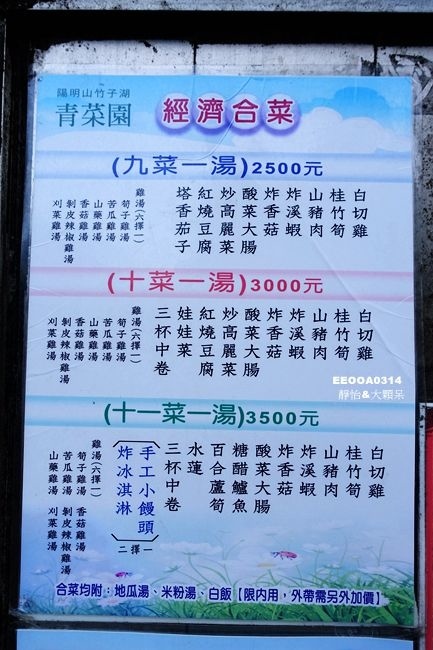 陽明山竹子湖
青菜園
經濟合菜
(九菜一湯)2500元
白切雞
桂竹筍
山豬肉
炸溪蝦
炸香菇
酸菜大腸
炒高麗菜
紅燒豆腐
塔香茄子
雞湯(六擇一)
筍子雞湯
苦瓜雞湯
山藥雞湯
香菇雞湯
剝皮辣椒雞湯
刈菜雞湯
(十菜一湯)3000元
白切雞
桂竹筍
山豬肉
炸溪蝦
炸香菇
酸菜大腸
炒高麗菜
紅燒豆腐
娃娃菜
三杯中卷
雞湯(六擇一)
筍子雞湯
苦瓜雞湯
山藥雞湯
香菇雞湯
剝皮辣椒雞湯
刈菜雞湯
EEOOA0314
靜怡&大顆呆
(十一菜一湯)3500元
白切雞
桂竹筍
山豬肉
炸溪蝦
炸香菇
酸菜大腸
糖醋鱸魚
百合蘆筍
水蓮
三杯中卷
手工小饅頭
炸冰淇淋
二擇一
雞湯(六擇一)
筍子雞湯 香菇雞湯
苦瓜雞湯 剝皮辣椒雞湯
山藥雞湯 刈菜雞湯
合菜均附：地瓜湯、米粉湯、白飯【限內用，外帶需另外加價】